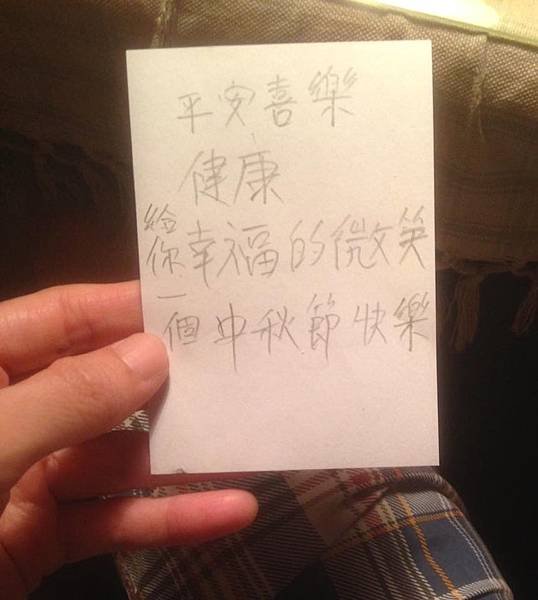 平安喜樂
健康
給你幸福的微笑
一個中秋節快樂